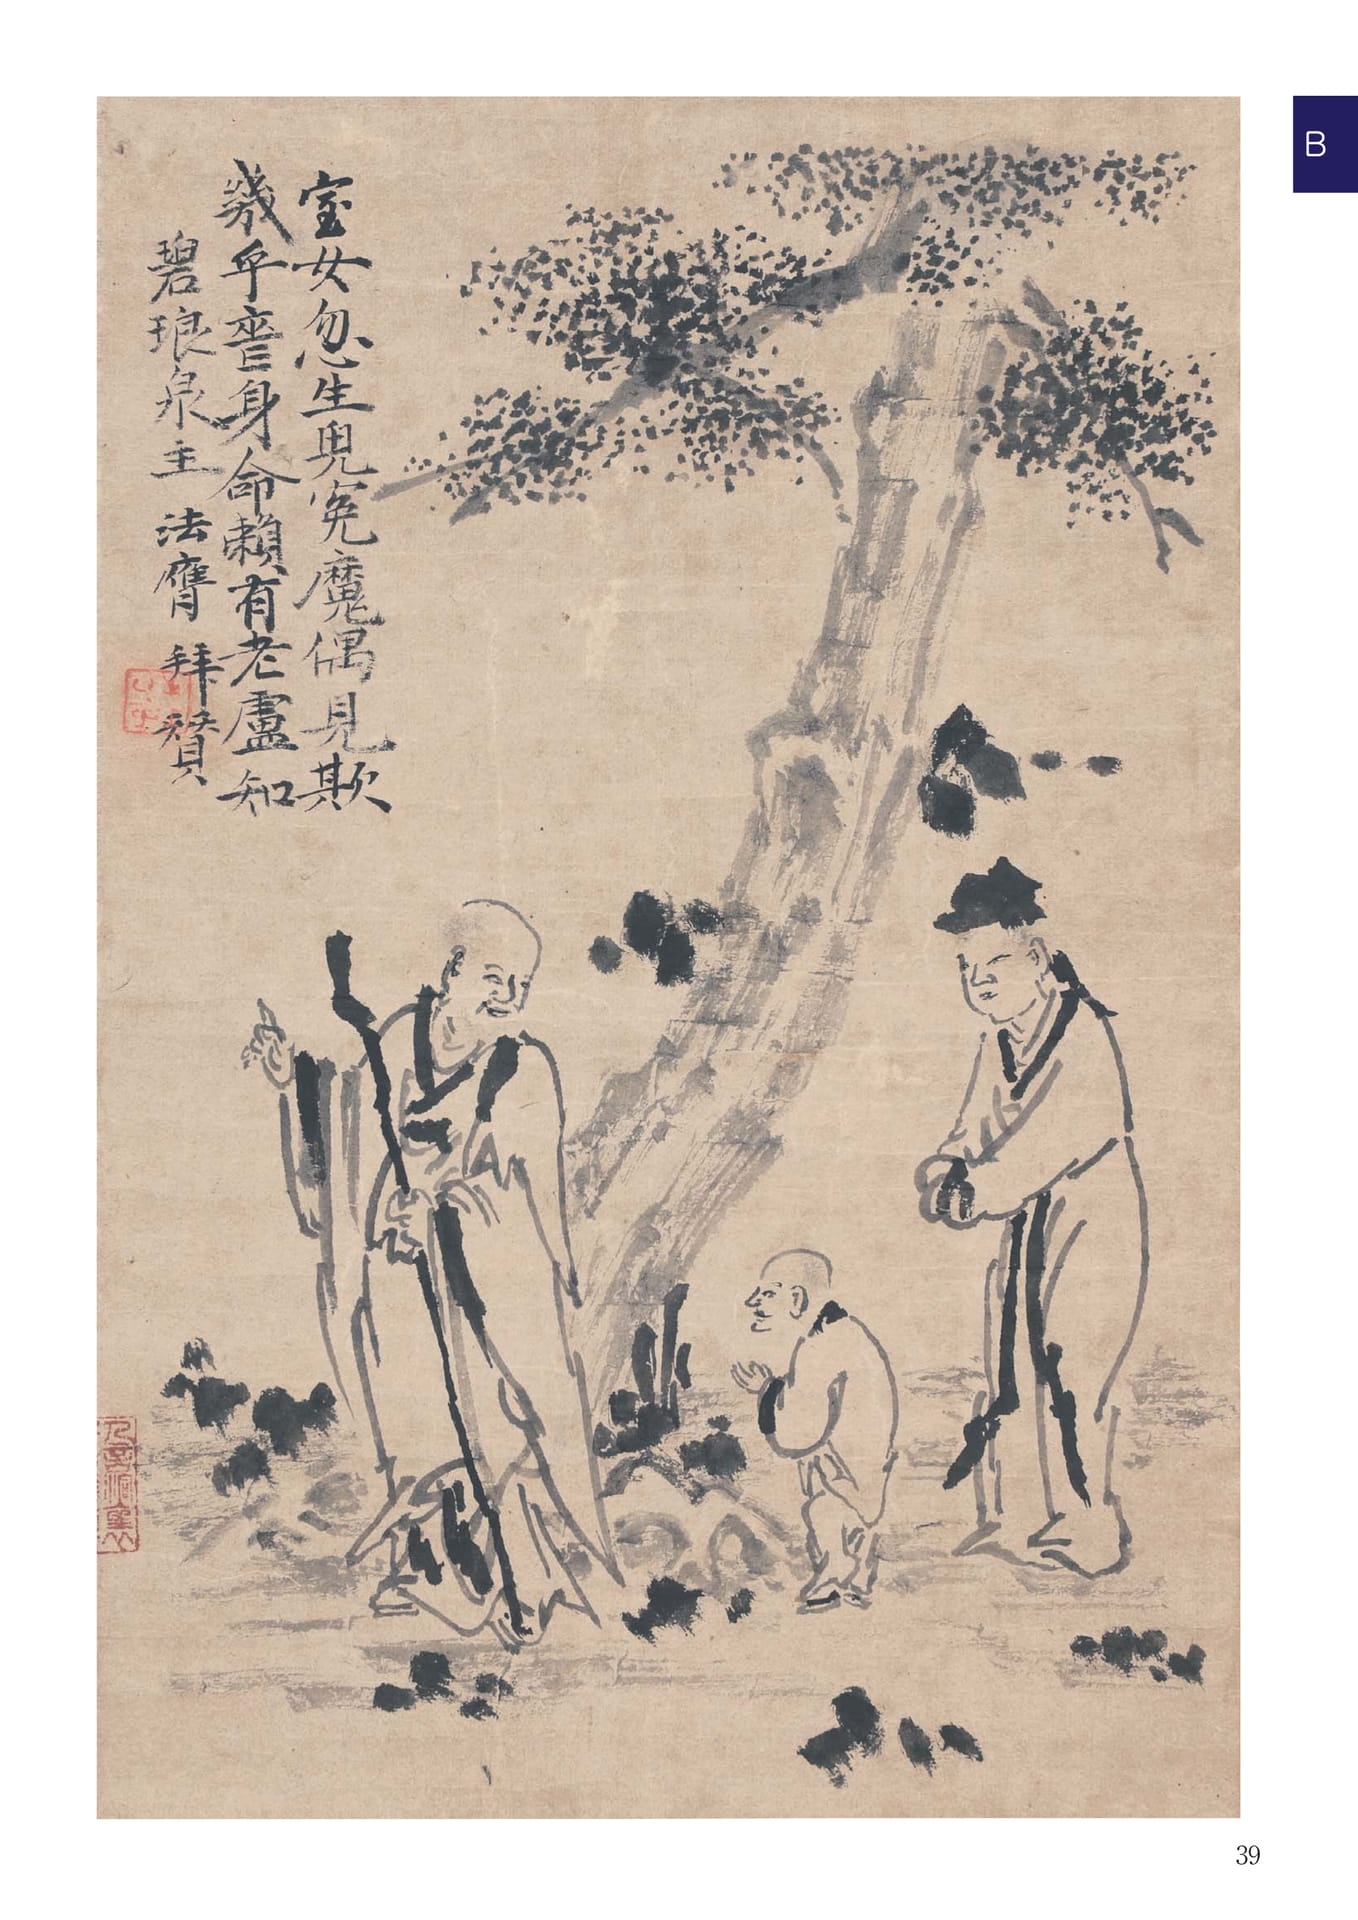 B
室女忽生兒冤魔偶見欺
幾乎喪身命賴有老盧知
碧琅泉主 法膺 拜贊
39